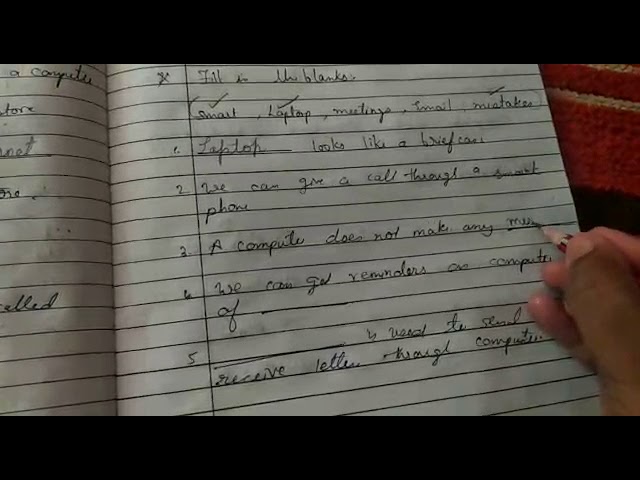 a computer
store
net
re.
celled
* Fill in the blanks.
(smart, Laptop, meetings, Email, mistakes)
1. Laptop looks like a briefcase
2. We can give a call through a smart
phone
3. A compute does not make any
4. We can get reminders on compute
of ______
5. ______ is used to send
receive letter through computer.